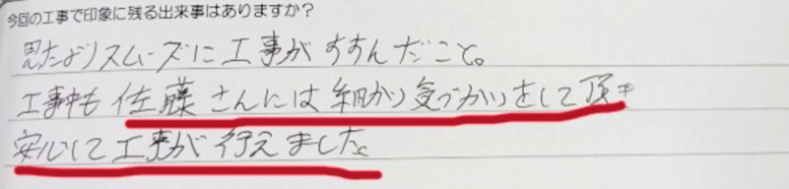 今回の工事で印象に残る出来事はありますか？
思たよりスムーズに工事がすすんだこと。
工事中も佐藤さんには細かい気づかいをして頂き
安心して工事が行えました。